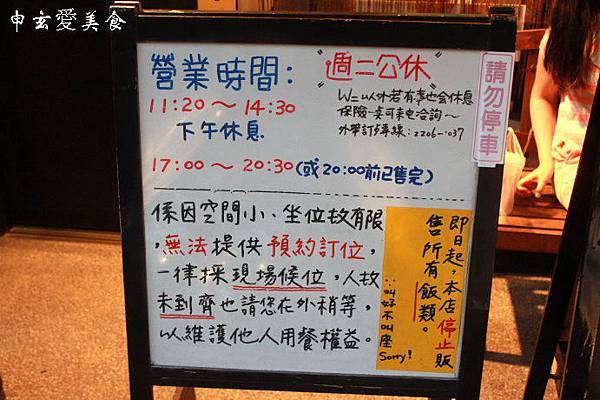 申玄愛美食
營業時間:
"週二公休"
11:20～14:30
W二以外若有事也會休息
保險一點可來电洽詢～
外帶訂位專線:2206-1037
下午休息
17:00～20:30(或20:00前已售完)
請勿停車
係因空間小、坐位故有限
,無法提供預約訂位,
一律採現場候位,人故
未到齊也請您在外稍等,
以維護他人用餐權益。
即日起,本店停止販
售所有飯類。
∵叫好不叫座 Sorry!